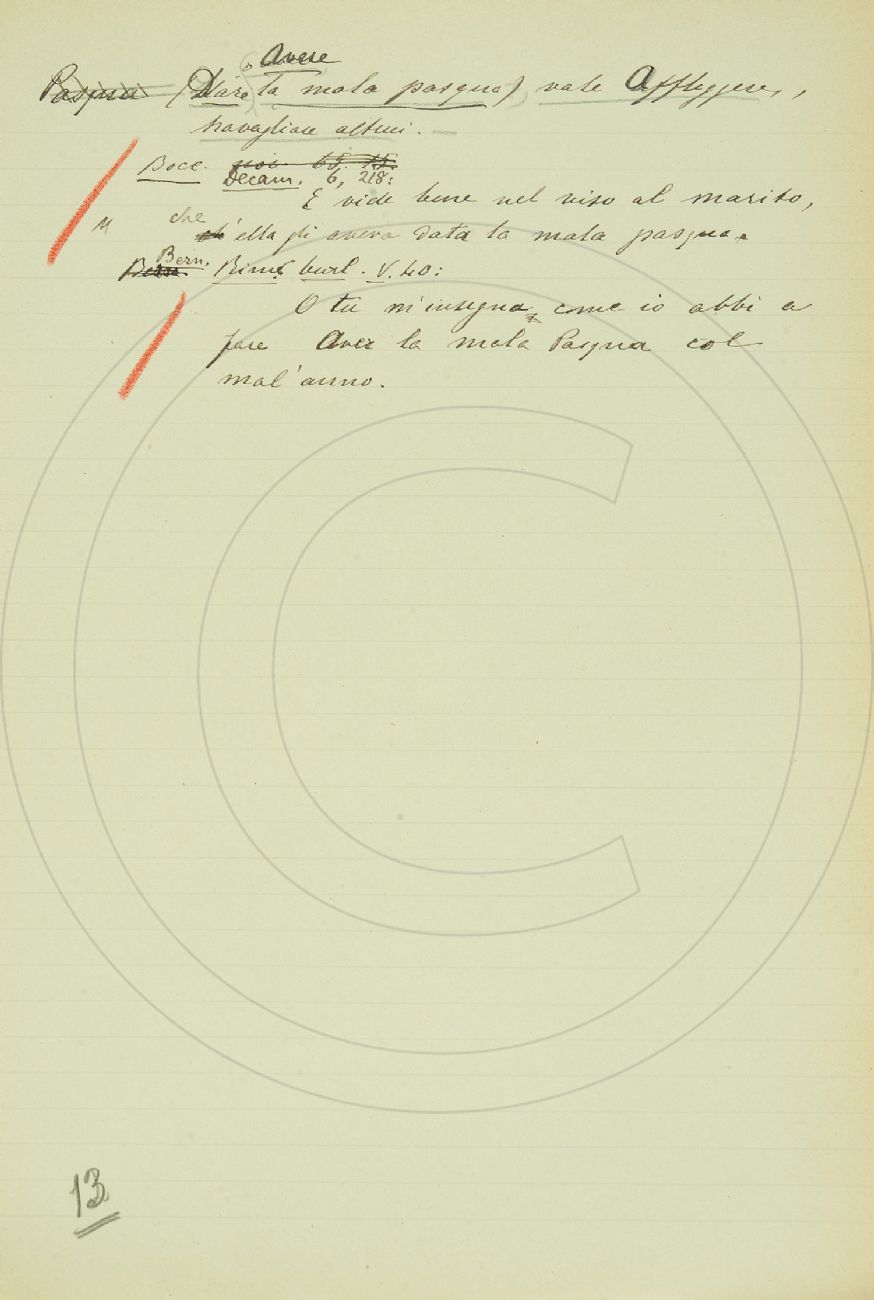 o Avere
Pasqua (Dare la mala pasqua) vale Affliggere,
travagliare altrui.
Bocc. nov. 65. 15.
Decam. 6, 218:
E vide bene nel viso al marito,
M che
ch'ella gli aveva data la mala pasqua.
Bern.
Bern. Rime burl. V. 40:
O tu m'insegna, come io abbi a
fare Aver la mala Pasqua col
mal'anno.
13